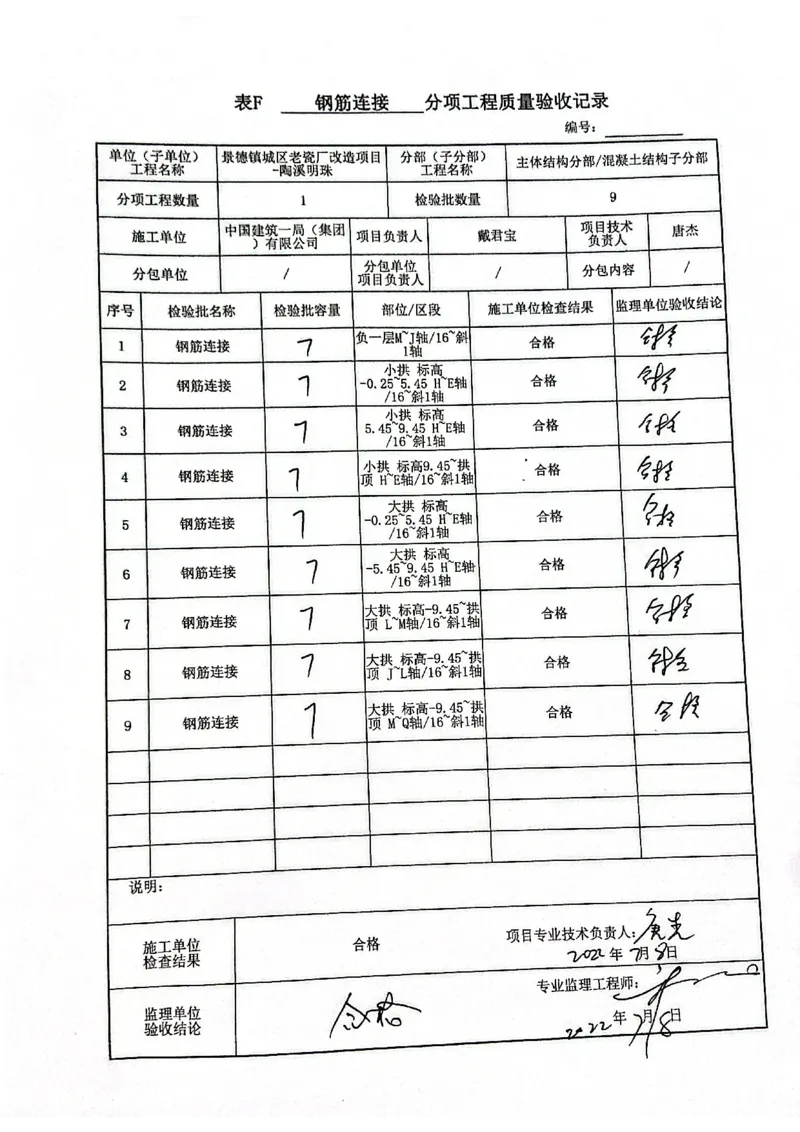 表F 钢筋连接 分项工程质量验收记录
编号:
单位(子单位)工程名称 景德镇城区老瓷厂改造项目-陶溪明珠 分部(子分部)工程名称 主体结构分部/混凝土结构子分部
分项工程数量 1 检验批数量 9
施工单位 中国建筑一局(集团)有限公司 项目负责人 戴君宝 项目技术负责人 唐杰
分包单位 / 分包单位项目负责人 / 分包内容 /
序号 检验批名称 检验批容量 部位/区段 施工单位检查结果 监理单位验收结论
1 钢筋连接 7 负一层M~J轴/16~斜1轴 合格 合格
2 钢筋连接 7 小拱 标高-0.25~5.45 H~E轴/16~斜1轴 合格 合格
3 钢筋连接 7 小拱 标高5.45~9.45 H~E轴/16~斜1轴 合格 合格
4 钢筋连接 7 小拱 标高9.45~拱顶 H~E轴/16~斜1轴 合格 合格
5 钢筋连接 7 大拱 标高-0.25~5.45 H~E轴/16~斜1轴 合格 合格
6 钢筋连接 7 大拱 标高-5.45~9.45 H~E轴/16~斜1轴 合格 合格
7 钢筋连接 7 大拱 标高-9.45~拱顶 L~M轴/16~斜1轴 合格 合格
8 钢筋连接 7 大拱 标高-9.45~拱顶 J~L轴/16~斜1轴 合格 合格
9 钢筋连接 7 大拱 标高-9.45~拱顶 M~Q轴/16~斜1轴 合格 合格
说明:
施工单位检查结果 合格 项目专业技术负责人:
2022年7月8日
监理单位验收结论 合格 专业监理工程师:
2022年7月8日